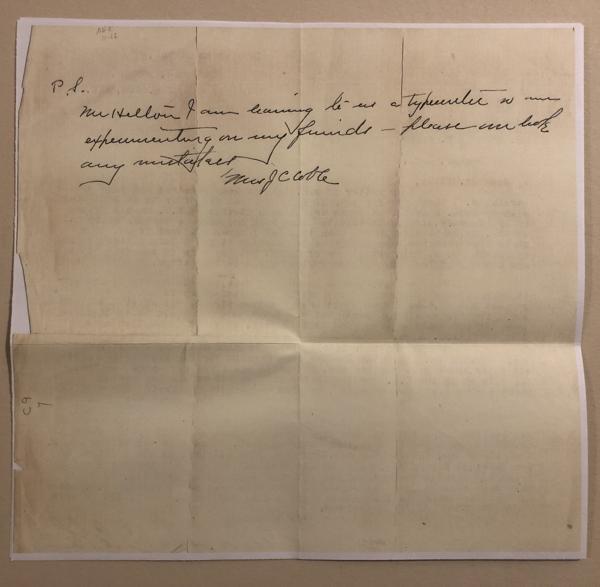 P. S.
Mr Hilton I am learning to use a typewriter so am
experimenting on my friends - please over look
any mistakes
Mrs J C Coble
C9
7